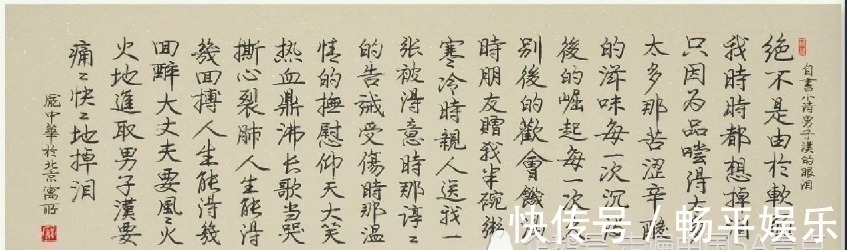 自書小詩男子漢的眼泪
絕不是由於軟
我時時都想掉泪
只因为品嚐得太多
太多那苦澀辛酸
的滋味每一次沉
後的崛起每一次久
别後的歡會餓
時朋友贈我半碗粥
寒冷時親人送我一
張被得意時那諄〻
的告誡受傷時那溫
情的撫慰仰天大笑
热血鼎沸长歌当哭
撕心裂肺人生能得
幾回搏人生能得幾
回醉大丈夫要風火
火地進取男子漢要
痛〻快〻地掉泪
龐中華於北京寓所
快传号 / 畅平娱乐